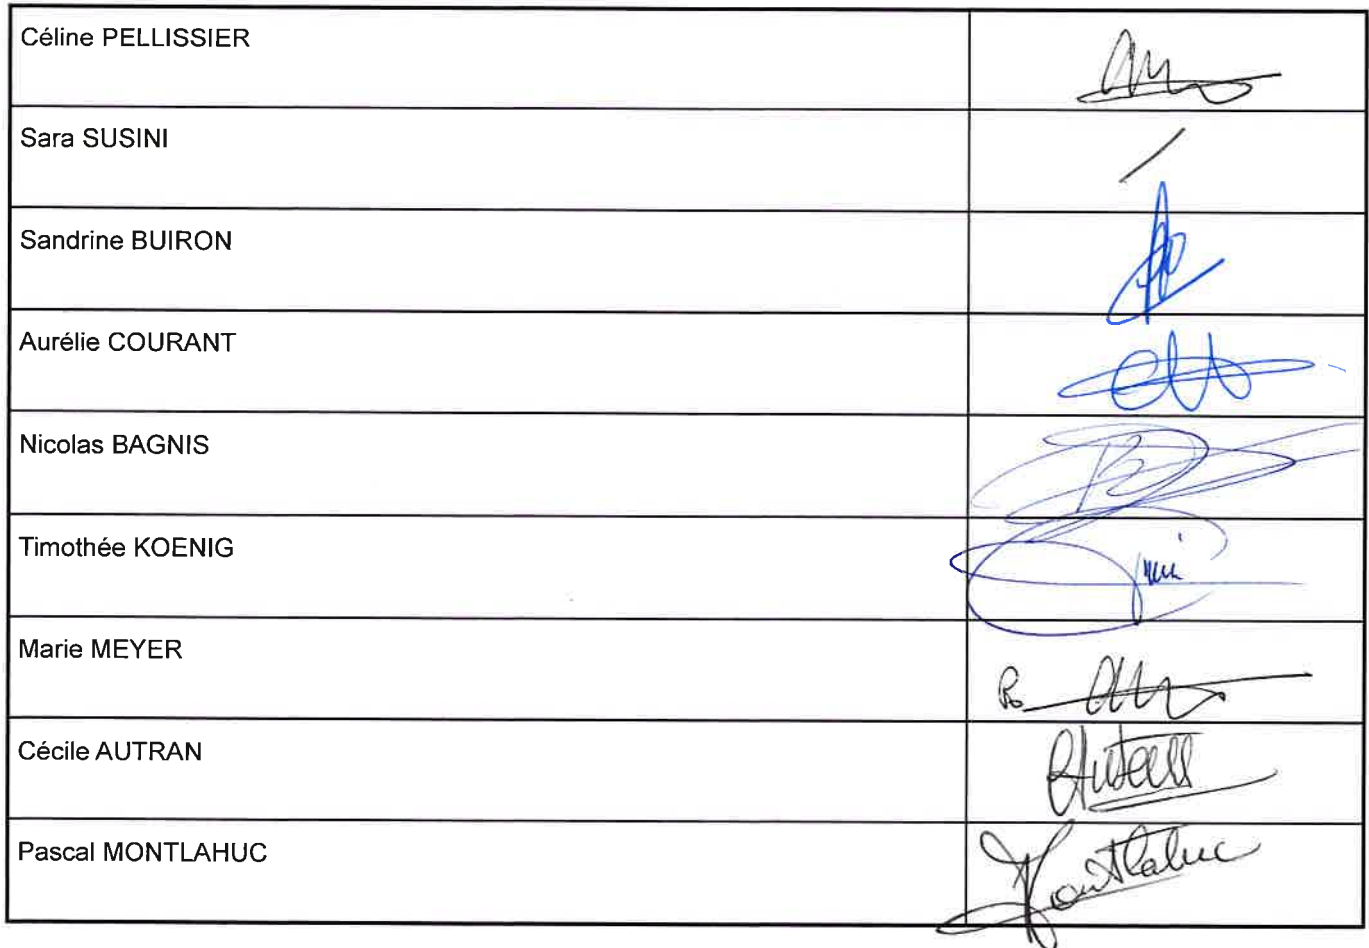 Céline PELLISSIER
Sara SUSINI
Sandrine BUIRON
Aurélie COURANT
Nicolas BAGNIS
Timothée KOENIG
Marie MEYER
Cécile AUTRAN
Pascal MONTLAHUC
Montlahuc